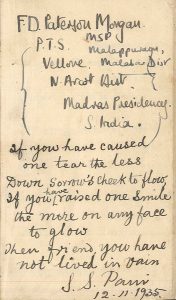 F.D. Paterson Morgan
P.T.S.
Vellore
N. Arcot Dist.
MSP
Malappuram,
Malabar Dist
Madras Presidency.
S. India.
If you have caused
one tear the less
Down Sorrow's Cheek to flow,
If you have raised one Smile
the more on any face
to glow
Then friend, you have
not lived in vain
12.11.1935.